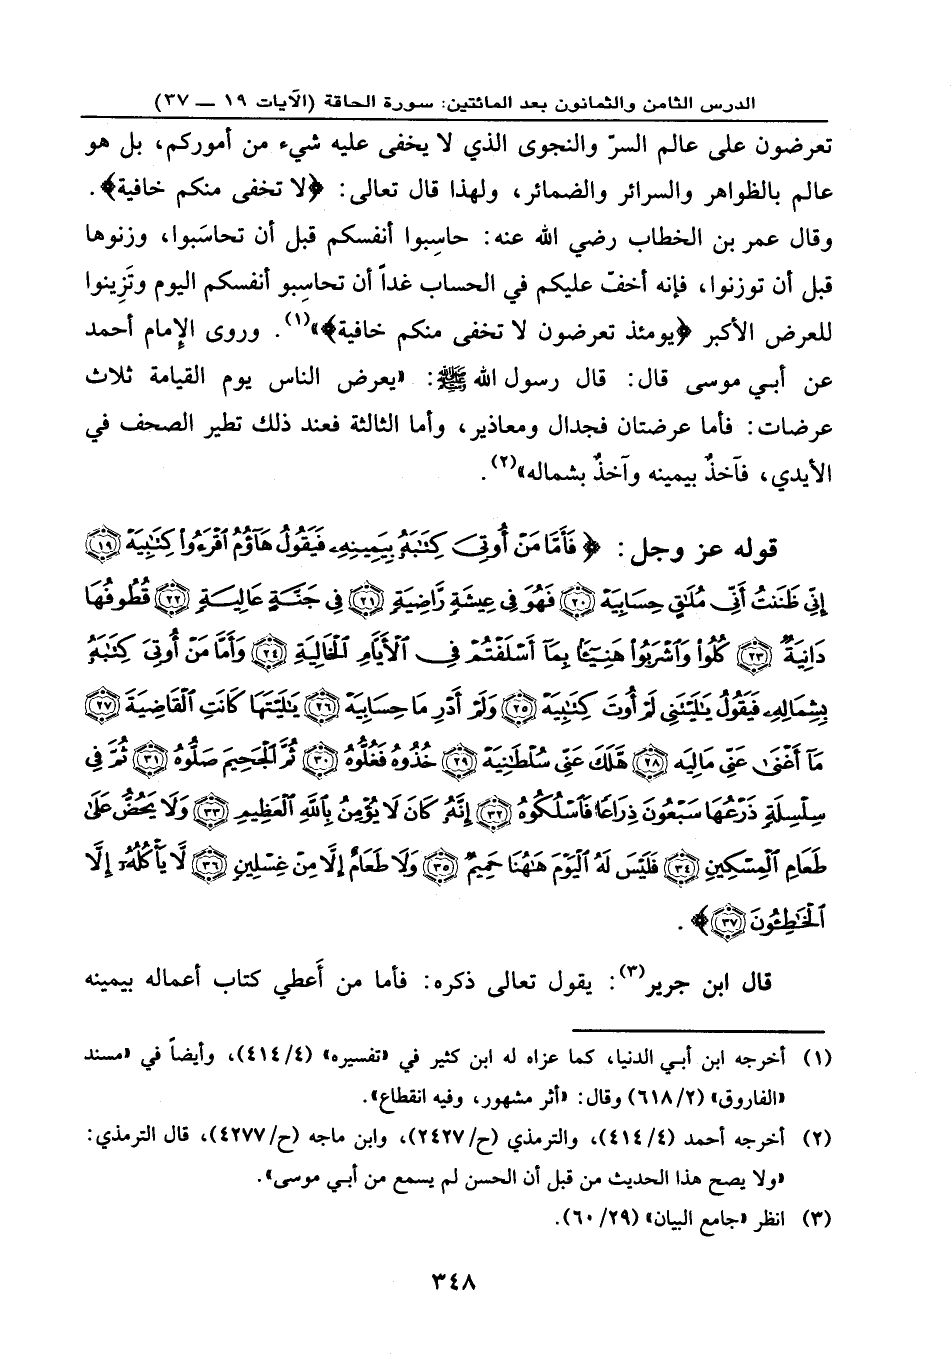 الدرس الثامن والثمانون بعد المائتين: سورة الحاقة (الآيات ١٩ ـ ٣٧)
تعرضون على عالم السرّ والنجوى الذي لا يخفى عليه شيء من أموركم، بل هو
عالم بالظواهر والسرائر والضمائر، ولهذا قال تعالى: ﴿لا تخفى منكم خافية﴾.
وقال عمر بن الخطاب رضي الله عنه: حاسِبوا أنفسكم قبل أن تحاسَبوا، وزنوها
قبل أن توزنوا، فإنه أخفّ عليكم في الحساب غداً أن تحاسِبو أنفسكم اليوم وتَزِينوا
للعرض الأكبر ﴿يومئذ تعرضون لا تخفى منكم خافية﴾»(١). وروى الإمام أحمد
عن أبي موسى قال: قال رسول الله ﷺ: «يعرض الناس يوم القيامة ثلاث
عرضات: فأما عرضتان فجدال ومعاذير، وأما الثالثة فعند ذلك تطير الصحف في
الأيدي، فآخذٌ بيمينه وآخذٌ بشماله»(٢).
قوله عز وجل: ﴿فَأَمَّا مَنْ أُوتِىَ كِتَٰبَهُۥ بِيَمِينِهِۦ فَيَقُولُ هَآؤُمُ ٱقْرَءُوا۟ كِتَٰبِيَهْ ١٩
إِنِّى ظَنَنتُ أَنِّى مُلَٰقٍ حِسَابِيَهْ ٢٠ فَهُوَ فِى عِيشَةٍ رَّاضِيَةٍ ٢١ فِى جَنَّةٍ عَالِيَةٍ ٢٢ قُطُوفُهَا
دَانِيَةٌ ٢٣ كُلُوا۟ وَٱشْرَبُوا۟ هَنِيٓـًٔۢا بِمَآ أَسْلَفْتُمْ فِى ٱلْأَيَّامِ ٱلْخَالِيَةِ ٢٤ وَأَمَّا مَنْ أُوتِىَ كِتَٰبَهُۥ
بِشِمَالِهِۦ فَيَقُولُ يَٰلَيْتَنِى لَمْ أُوتَ كِتَٰبِيَهْ ٢٥ وَلَمْ أَدْرِ مَا حِسَابِيَهْ ٢٦ يَٰلَيْتَهَا كَانَتِ ٱلْقَاضِيَةَ ٢٧
مَآ أَغْنَىٰ عَنِّى مَالِيَهْ ٢٨ هَلَكَ عَنِّى سُلْطَٰنِيَهْ ٢٩ خُذُوهُ فَغُلُّوهُ ٣٠ ثُمَّ ٱلْجَحِيمَ صَلُّوهُ ٣١ ثُمَّ فِى
سِلْسِلَةٍ ذَرْعُهَا سَبْعُونَ ذِرَاعًا فَٱسْلُكُوهُ ٣٢ إِنَّهُۥ كَانَ لَا يُؤْمِنُ بِٱللَّهِ ٱلْعَظِيمِ ٣٣ وَلَا يَحُضُّ عَلَىٰ
طَعَامِ ٱلْمِسْكِينِ ٣٤ فَلَيْسَ لَهُ ٱلْيَوْمَ هَٰهُنَا حَمِيمٌ ٣٥ وَلَا طَعَامٌ إِلَّا مِنْ غِسْلِينٍ ٣٦ لَّا يَأْكُلُهُۥٓ إِلَّا
ٱلْخَٰطِـُٔونَ ٣٧﴾.
قال ابن جرير(٣): يقول تعالى ذكره: فأما من أَعطي كتاب أعماله بيمينه
(١) أخرجه ابن أبي الدنيا، كما عزاه له ابن كثير في «تفسيره» (٤١٤/٤)، وأيضاً في «مسند
الفاروق» (٦١٨/٢) وقال: «أثر مشهور، وفيه انقطاع».
(٢) أخرجه أحمد (٤١٤/٤)، والترمذي (ح/٢٤٢٧)، وابن ماجه (ح/٤٢٧٧)، قال الترمذي:
«ولا يصح هذا الحديث من قبل أن الحسن لم يسمع من أبي موسى».
(٣) انظر «جامع البيان» (٦٠/٢٩).
٣٤٨